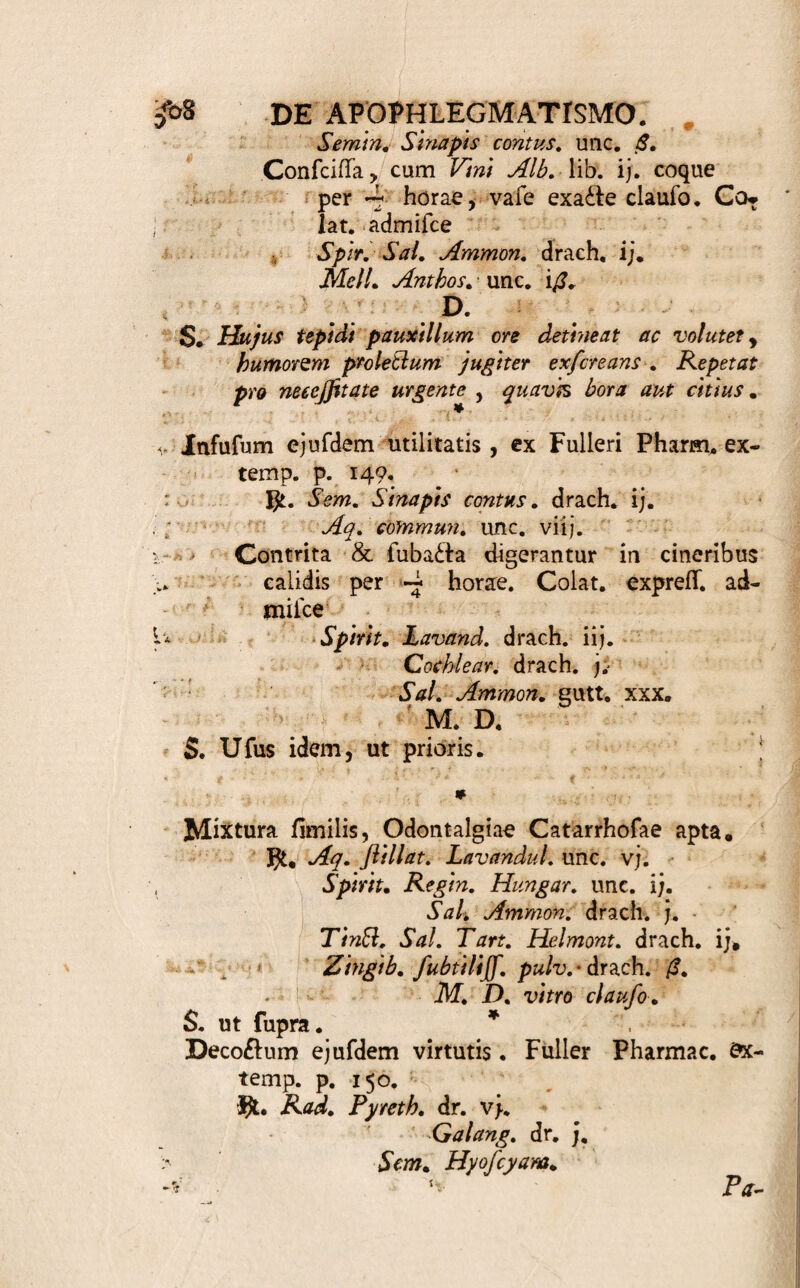 308 DE APOPHLEGMATISMO.
Semin. Sinapis contus. unc. ß.
Confciffa, cum Vini Alb. lib. ij. coque
per ½ horae, vafe exacte claufo. Co-
lat. admifce
Spir. Sal. Ammon. drach. ij.
Mell. Anthos. unc. iß.
D.
S. Hujus tepidi pauxillum ore detineat ac volutet,
humorem prolectum jugiter exfcreans. Repetat
pro neceffitate urgente, quavis hora aut citius.
*
Infufum ejufdem utilitatis, ex Fulleri Pharm. ex-
temp. p. 149.
℞. Sem. Sinapis contus. drach. ij.
Aq. commun. unc. viij.
Contrita & fubacta digerantur in cineribus
calidis per ¼ horae. Colat. expreff. ad-
mifce
Spirit. Lavand. drach. iij.
Cochlear. drach. j.
Sal. Ammon. gutt. xxx.
M. D.
S. Ufus idem, ut prioris.
*
Mixtura fimilis, Odontalgiae Catarrhofae apta.
℞. Aq. ftillat. Lavandul. unc. vj.
Spirit. Regin. Hungar. unc. ij.
Sal. Ammon. drach. j.
Tinct. Sal. Tart. Helmont. drach. ij.
Zingib. fubtiliff. pulv. drach. ß.
M. D. vitro claufo.
S. ut fupra. *
Decoctum ejufdem virtutis. Fuller Pharmac. ex-
temp. p. 150.
℞. Rad. Pyreth. dr. vj.
Galang. dr. j.
Sem. Hyofcyam.
Pa-